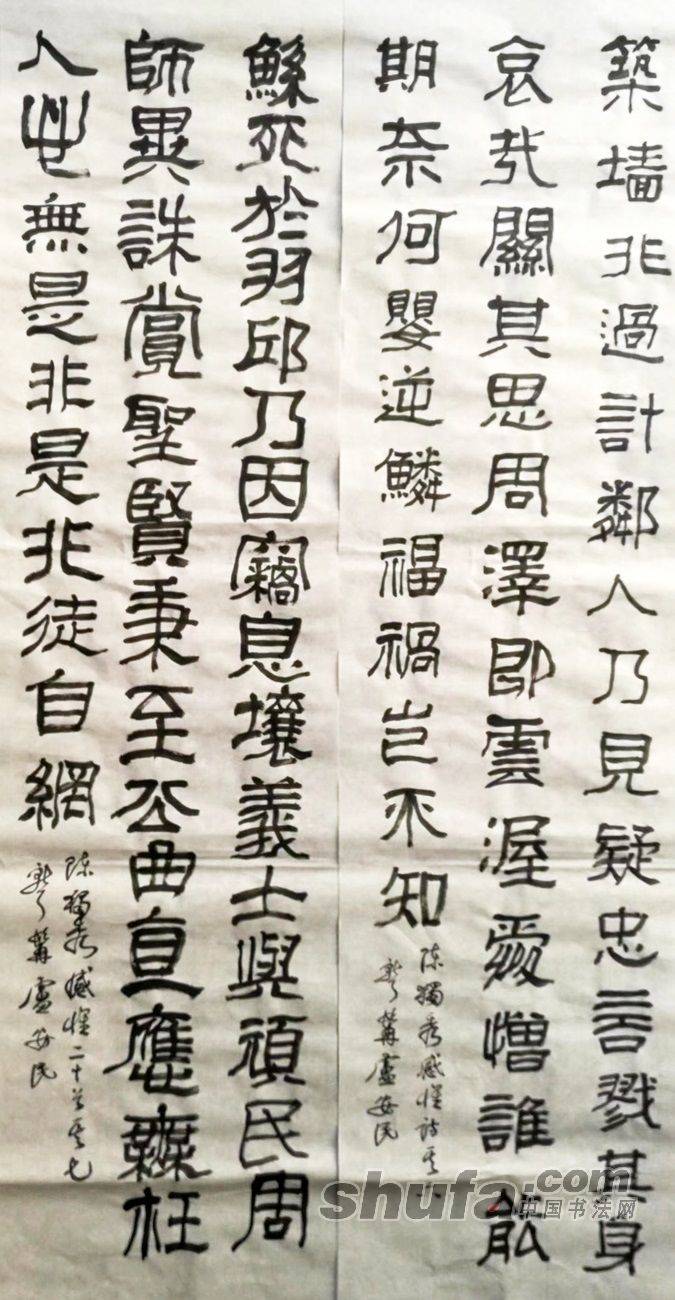 築墙非過計鄰人乃見疑忠言戮其身
哀哉關其思周澤即雲渥愛憎誰能
期奈何嬰逆鱗福禍岂不知
陳獨秀感懷詩其六
盧安民
鯀死於羽邱乃因竊息壤義士與頑民周
師異誅賞聖賢秉至公曲直應靡枉
人世無是非是非徒自網
陳獨秀感懷二十首其七
盧安民
shufa.com
中国书法网